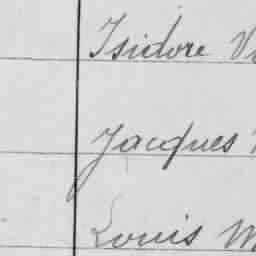 Isidore
Jacques
Louis